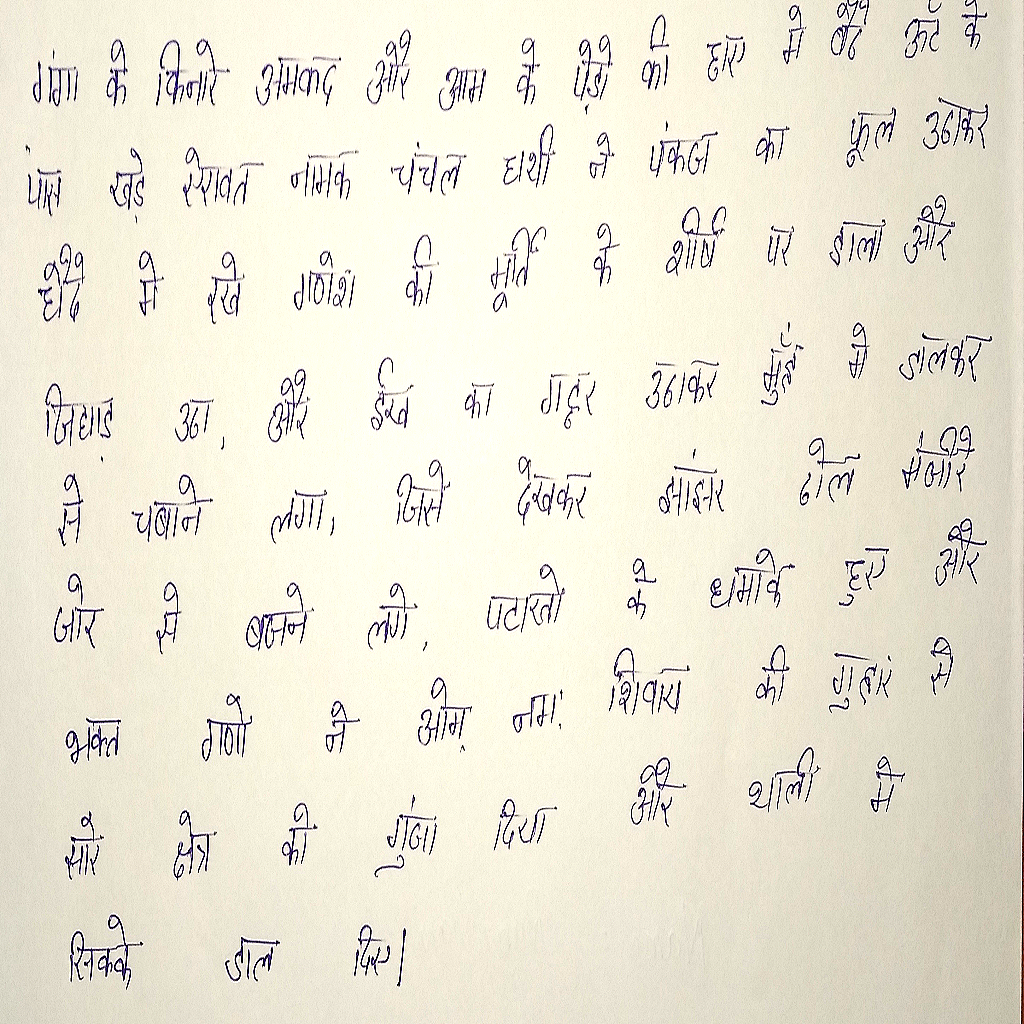 गंगा के किनारे अमरूद और आम के पेड़ो की छाए मे बैठे ऊंट के
पास खड़े ऐरावत नामक चंचल हाथी ने पंकज का फूल उठाकर
हौदे मे रखे गणेश की मूर्ति के शीर्ष पर डाला और
चिंघाड़ उठा, और ईख का गट्ठर उठाकर मुँह मे डालकर
से चबाने लगा, जिसे देखकर झांझर ढोल मंजीरे
जोर से बजने लगे, पटाखो के धमाके हुए और
भक्त गणो ने ओम् नमः शिवाय की गुहार से
सारे क्षेत्र को गुंजा दिया और थाली मे
सिक्के डाल दिए।